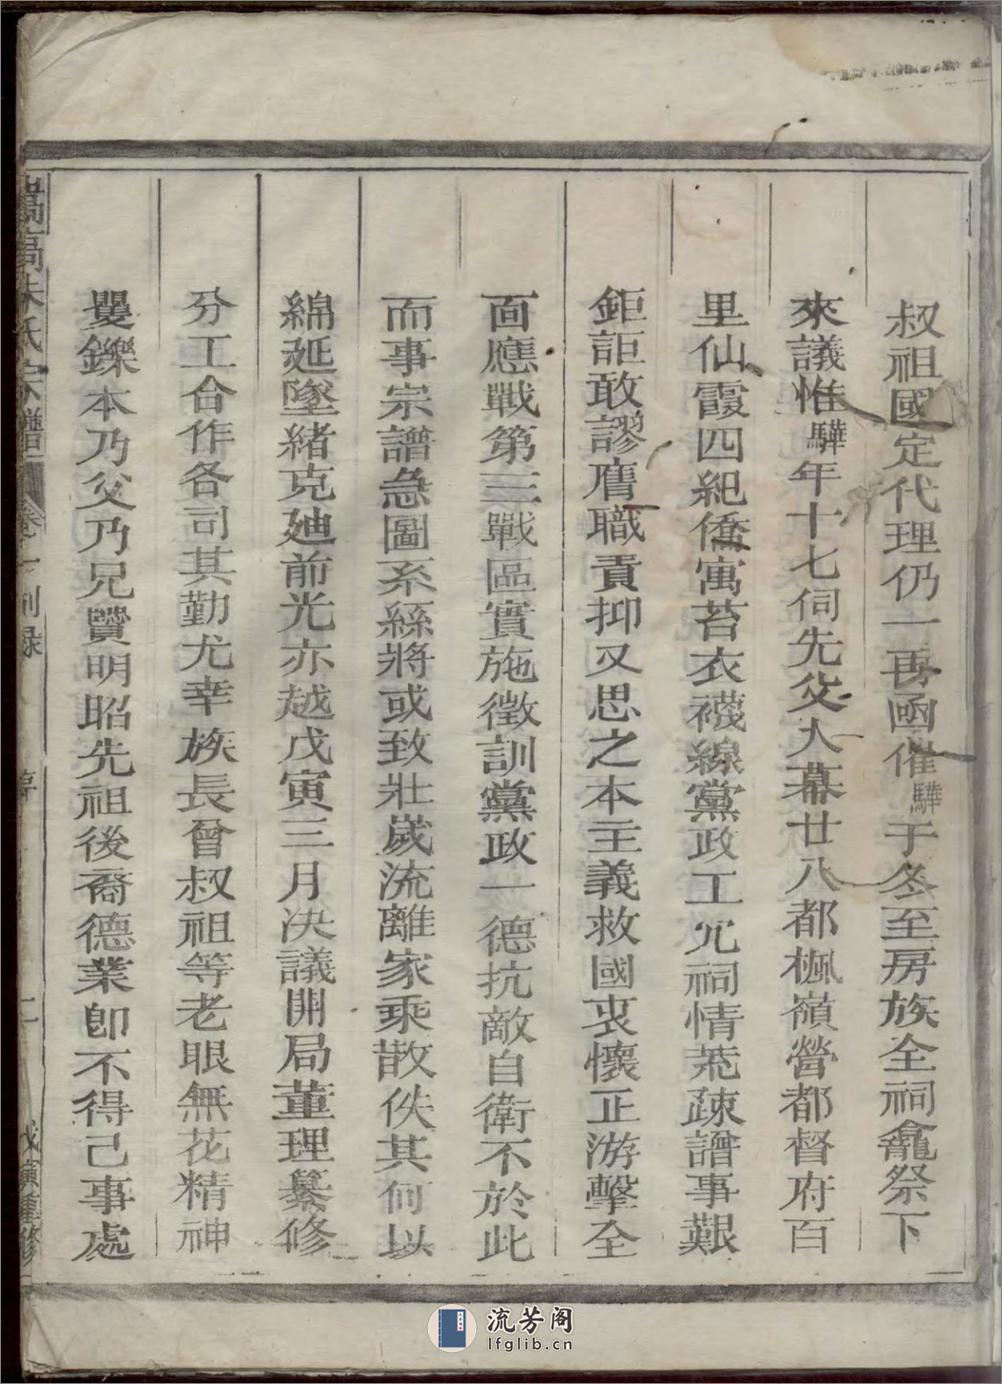 叔祖國定代理仍一再函催驊于冬至房族全祠龕祭下
來議惟驊年十七伺先父大幕廿八都楓嶺營都督府百
里仙霞四紀僑寓苔衣襪線黨政工冗祠情恭疎譜事艱
鉅詎敢謬膺職責抑又思之本主義救國衷懷正游擊全
面應戰第三戰區實施徵訓黨政一德抗敵自衛不於此
而事宗譜急圖系絲將或致壯嵗流離家乘散佚其何以
綿延墜緒克廸前光亦越戊寅三月決議開局董理纂修
分工合作各司其勤尤幸族長曾叔祖等老眼無花精神
矍鑠本乃父乃兄賢明昭先祖後裔德業卽不得已事處
嵩高朱氏宗譜 卷一 別錄 二 戊寅重修
流芳阁
lfglib.cn